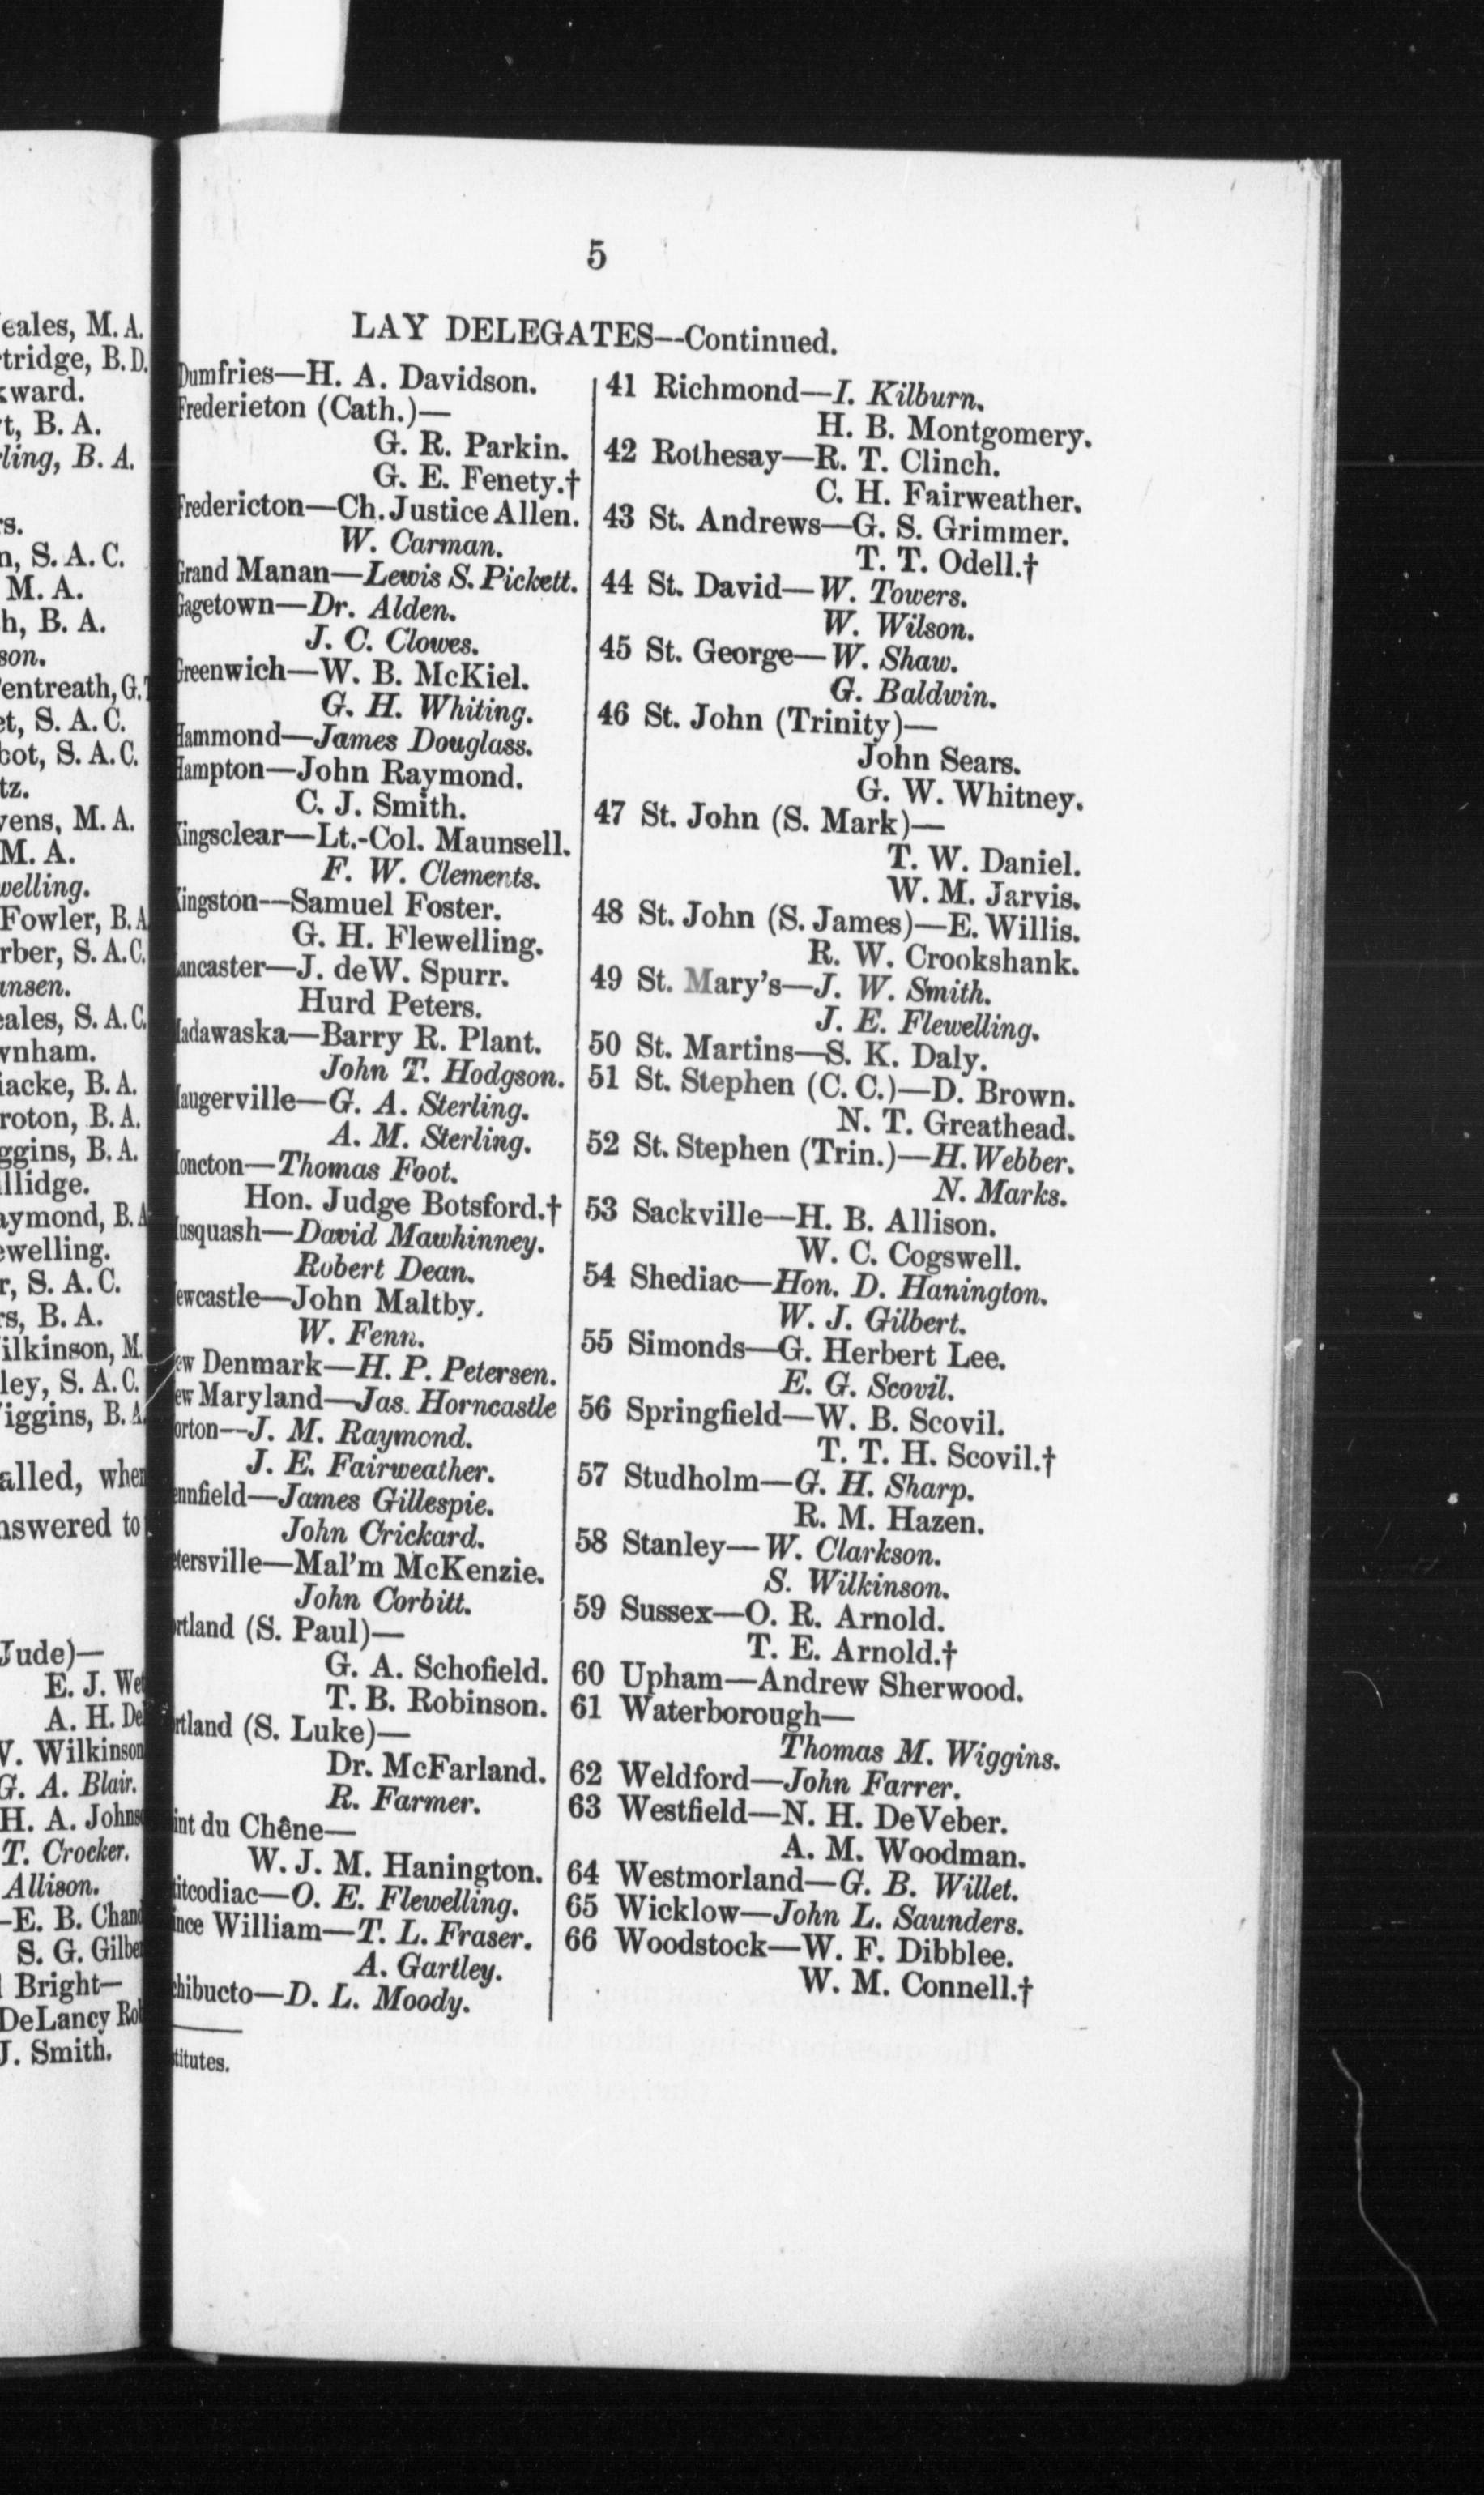 eales, M. A.
tridge, B. D.
ward.
t, B. A.
ling, B. A.
rs.
n, S. A. C.
M. A.
h, B. A.
son.
entreath, G.
et, S. A. C.
cot, S. A. C.
tz.
vens, M. A.
M. A.
welling.
Fowler, B. A
rber, S. A. C.
ansen.
eales, S. A. C.
wnham.
iacke, B. A.
roton, B. A.
ggins, B. A.
llidge.
aymond, B. A
ewelling.
r, S. A. C.
rs, B. A.
ilkinson, M.
ley, S. A. C.
iggins, B. A.
alled, when
nswered to
Jude)—
E. J. Wet
A. H. De
V. Wilkinson
G. A. Blair.
H. A. Johns
T. Crocker.
Allison.
—E. B. Chand
S. G. Gilber
Bright—
DeLancy Rob
J. Smith.
5
LAY DELEGATES--Continued.
Dumfries—H. A. Davidson.
Frederieton (Cath.)—
G. R. Parkin.
G. E. Fenety.†
Fredericton—Ch. Justice Allen.
W. Carman.
Grand Manan—Lewis S. Pickett.
Gagetown—Dr. Alden.
J. C. Clowes.
Greenwich—W. B. McKiel.
G. H. Whiting.
Hammond—James Douglass.
Hampton—John Raymond.
C. J. Smith.
Kingsclear—Lt.-Col. Maunsell.
F. W. Clements.
Kingston—Samuel Foster.
G. H. Flewelling.
Lancaster—J. deW. Spurr.
Hurd Peters.
Madawaska—Barry R. Plant.
John T. Hodgson.
Maugerville—G. A. Sterling.
A. M. Sterling.
oncton—Thomas Foot.
Hon. Judge Botsford.†
usquash—David Mawhinney.
Robert Dean.
ewcastle—John Maltby.
W. Fenn.
ew Denmark—H. P. Petersen.
ew Maryland—Jas. Horncastle
orton—J. M. Raymond.
J. E. Fairweather.
ennfield—James Gillespie.
John Crickard.
etersville—Mal'm McKenzie.
John Corbitt.
ortland (S. Paul)—
G. A. Schofield.
T. B. Robinson.
rtland (S. Luke)—
Dr. McFarland.
R. Farmer.
int du Chêne—
W. J. M. Hanington.
titcodiac—O. E. Flewelling.
ince William—T. L. Fraser.
A. Gartley.
chibucto—D. L. Moody.
titutes.
41 Richmond—I. Kilburn.
H. B. Montgomery.
42 Rothesay—R. T. Clinch.
C. H. Fairweather.
43 St. Andrews—G. S. Grimmer.
T. T. Odell.†
44 St. David—W. Towers.
W. Wilson.
45 St. George—W. Shaw.
G. Baldwin.
46 St. John (Trinity)—
John Sears.
G. W. Whitney.
47 St. John (S. Mark)—
T. W. Daniel.
W. M. Jarvis.
48 St. John (S. James)—E. Willis.
R. W. Crookshank.
49 St. Mary's—J. W. Smith.
J. E. Flewelling.
50 St. Martins—S. K. Daly.
51 St. Stephen (C. C.)—D. Brown.
N. T. Greathead.
52 St. Stephen (Trin.)—H. Webber.
N. Marks.
53 Sackville—H. B. Allison.
W. C. Cogswell.
54 Shediac—Hon. D. Hanington.
W. J. Gilbert.
55 Simonds—G. Herbert Lee.
E. G. Scovil.
56 Springfield—W. B. Scovil.
T. T. H. Scovil.†
57 Studholm—G. H. Sharp.
R. M. Hazen.
58 Stanley—W. Clarkson.
S. Wilkinson.
59 Sussex—O. R. Arnold.
T. E. Arnold.†
60 Upham—Andrew Sherwood.
61 Waterborough—
Thomas M. Wiggins.
62 Weldford—John Farrer.
63 Westfield—N. H. DeVeber.
A. M. Woodman.
64 Westmorland—G. B. Willet.
65 Wicklow—John L. Saunders.
66 Woodstock—W. F. Dibblee.
W. M. Connell.†